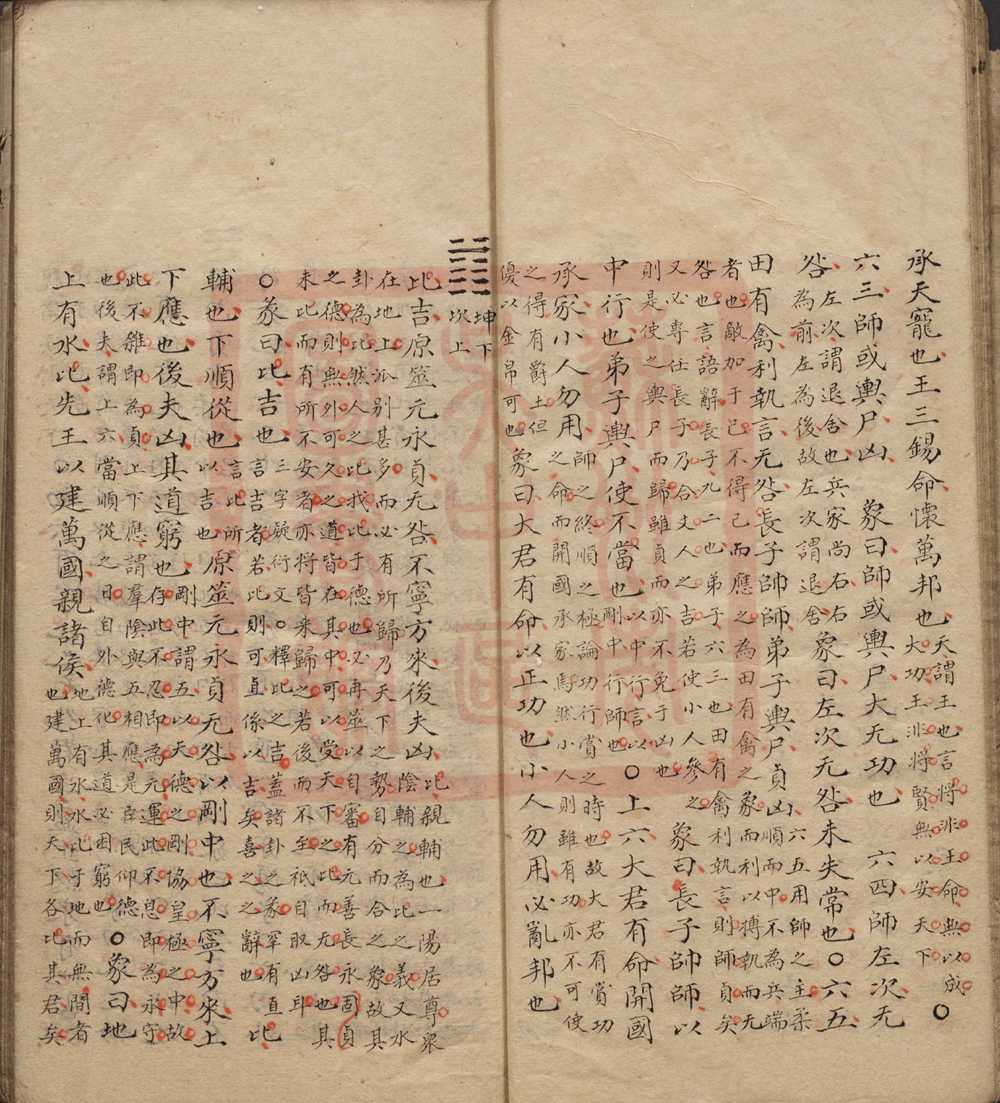 承天寵也王三錫命懷萬邦也天謂王也言將非王命無以成
大功王非將賢無以安天下○
六三師或輿尸凶 象曰師或輿尸大无功也 六四師左次无
咎左次謂退舍也兵家尚右右
為前左為後故左次謂退舍象曰左次无咎未失常也○六五
田有禽利執言无咎長子帥師弟子輿尸貞凶六五用師之主柔
順而中不為兵端
者也敵加于已不得已而應之為田有禽之象而利以搏執而无
咎也言語辭長子九二也弟子六三也田有禽利執言則師貞矣
又必專任長子乃合丈人之吉若使小人參之
則是使之輿尸而歸雖貞而亦不免于凶也象曰長子帥師以
中行也弟子輿尸使不當也以中行言以
剛中行師也○上六大君有命開國
承家小人勿用師之終順之極論功行賞之時也故大君有賞功
之命而開國承家焉然小人則雖有功亦不可使
之得有爵土但
優以金帛可也象曰大君有命以正功也小人勿用必亂邦也
坤下
坎上
比吉原筮元永貞无咎不寧方來後夫凶比親輔也一陽居尊衆
陰輔之為比之義又水
在地上派別甚多而必有所歸乃天下之勢自分而合之象故其
卦為比然人之比我比于德也必再筮以自審有元善長永固貞
之德則無外可久之道皆在其中可以受天下之比而无咎也其
未比而有所不安者亦將皆來歸之若後而不至祇自取凶耳
○彖曰比吉也三字疑衍文○釋比之吉蓋諸卦之彖罕有直
言吉者若比則可直係以吉矣喜之之辭也比
輔也下順從也言比所
以吉也原筮元永貞无咎以剛中也不寧方來上
下應也後夫凶其道窮也剛中謂五以天德之剛協皇極之中故
存此不忍即為元運此不息即為永守
此不雜即為貞上下應謂羣陰與五相應是臣民仰德
也後夫謂上六當順從之日自外德化其道必困窮也○象曰地
上有水比先王以建萬國親諸侯地上有水水比于地而無間者
也建萬國則天下各比其君矣